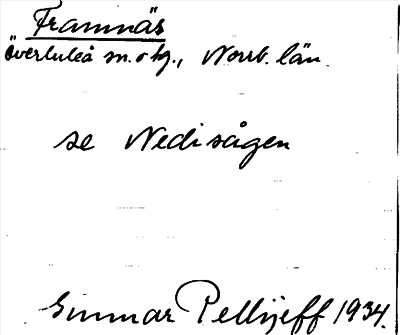 Framnäs
Överluleå sn. o hg., Norrb. län.
se Nedisågen
Gunnar Pellijeff 1934.